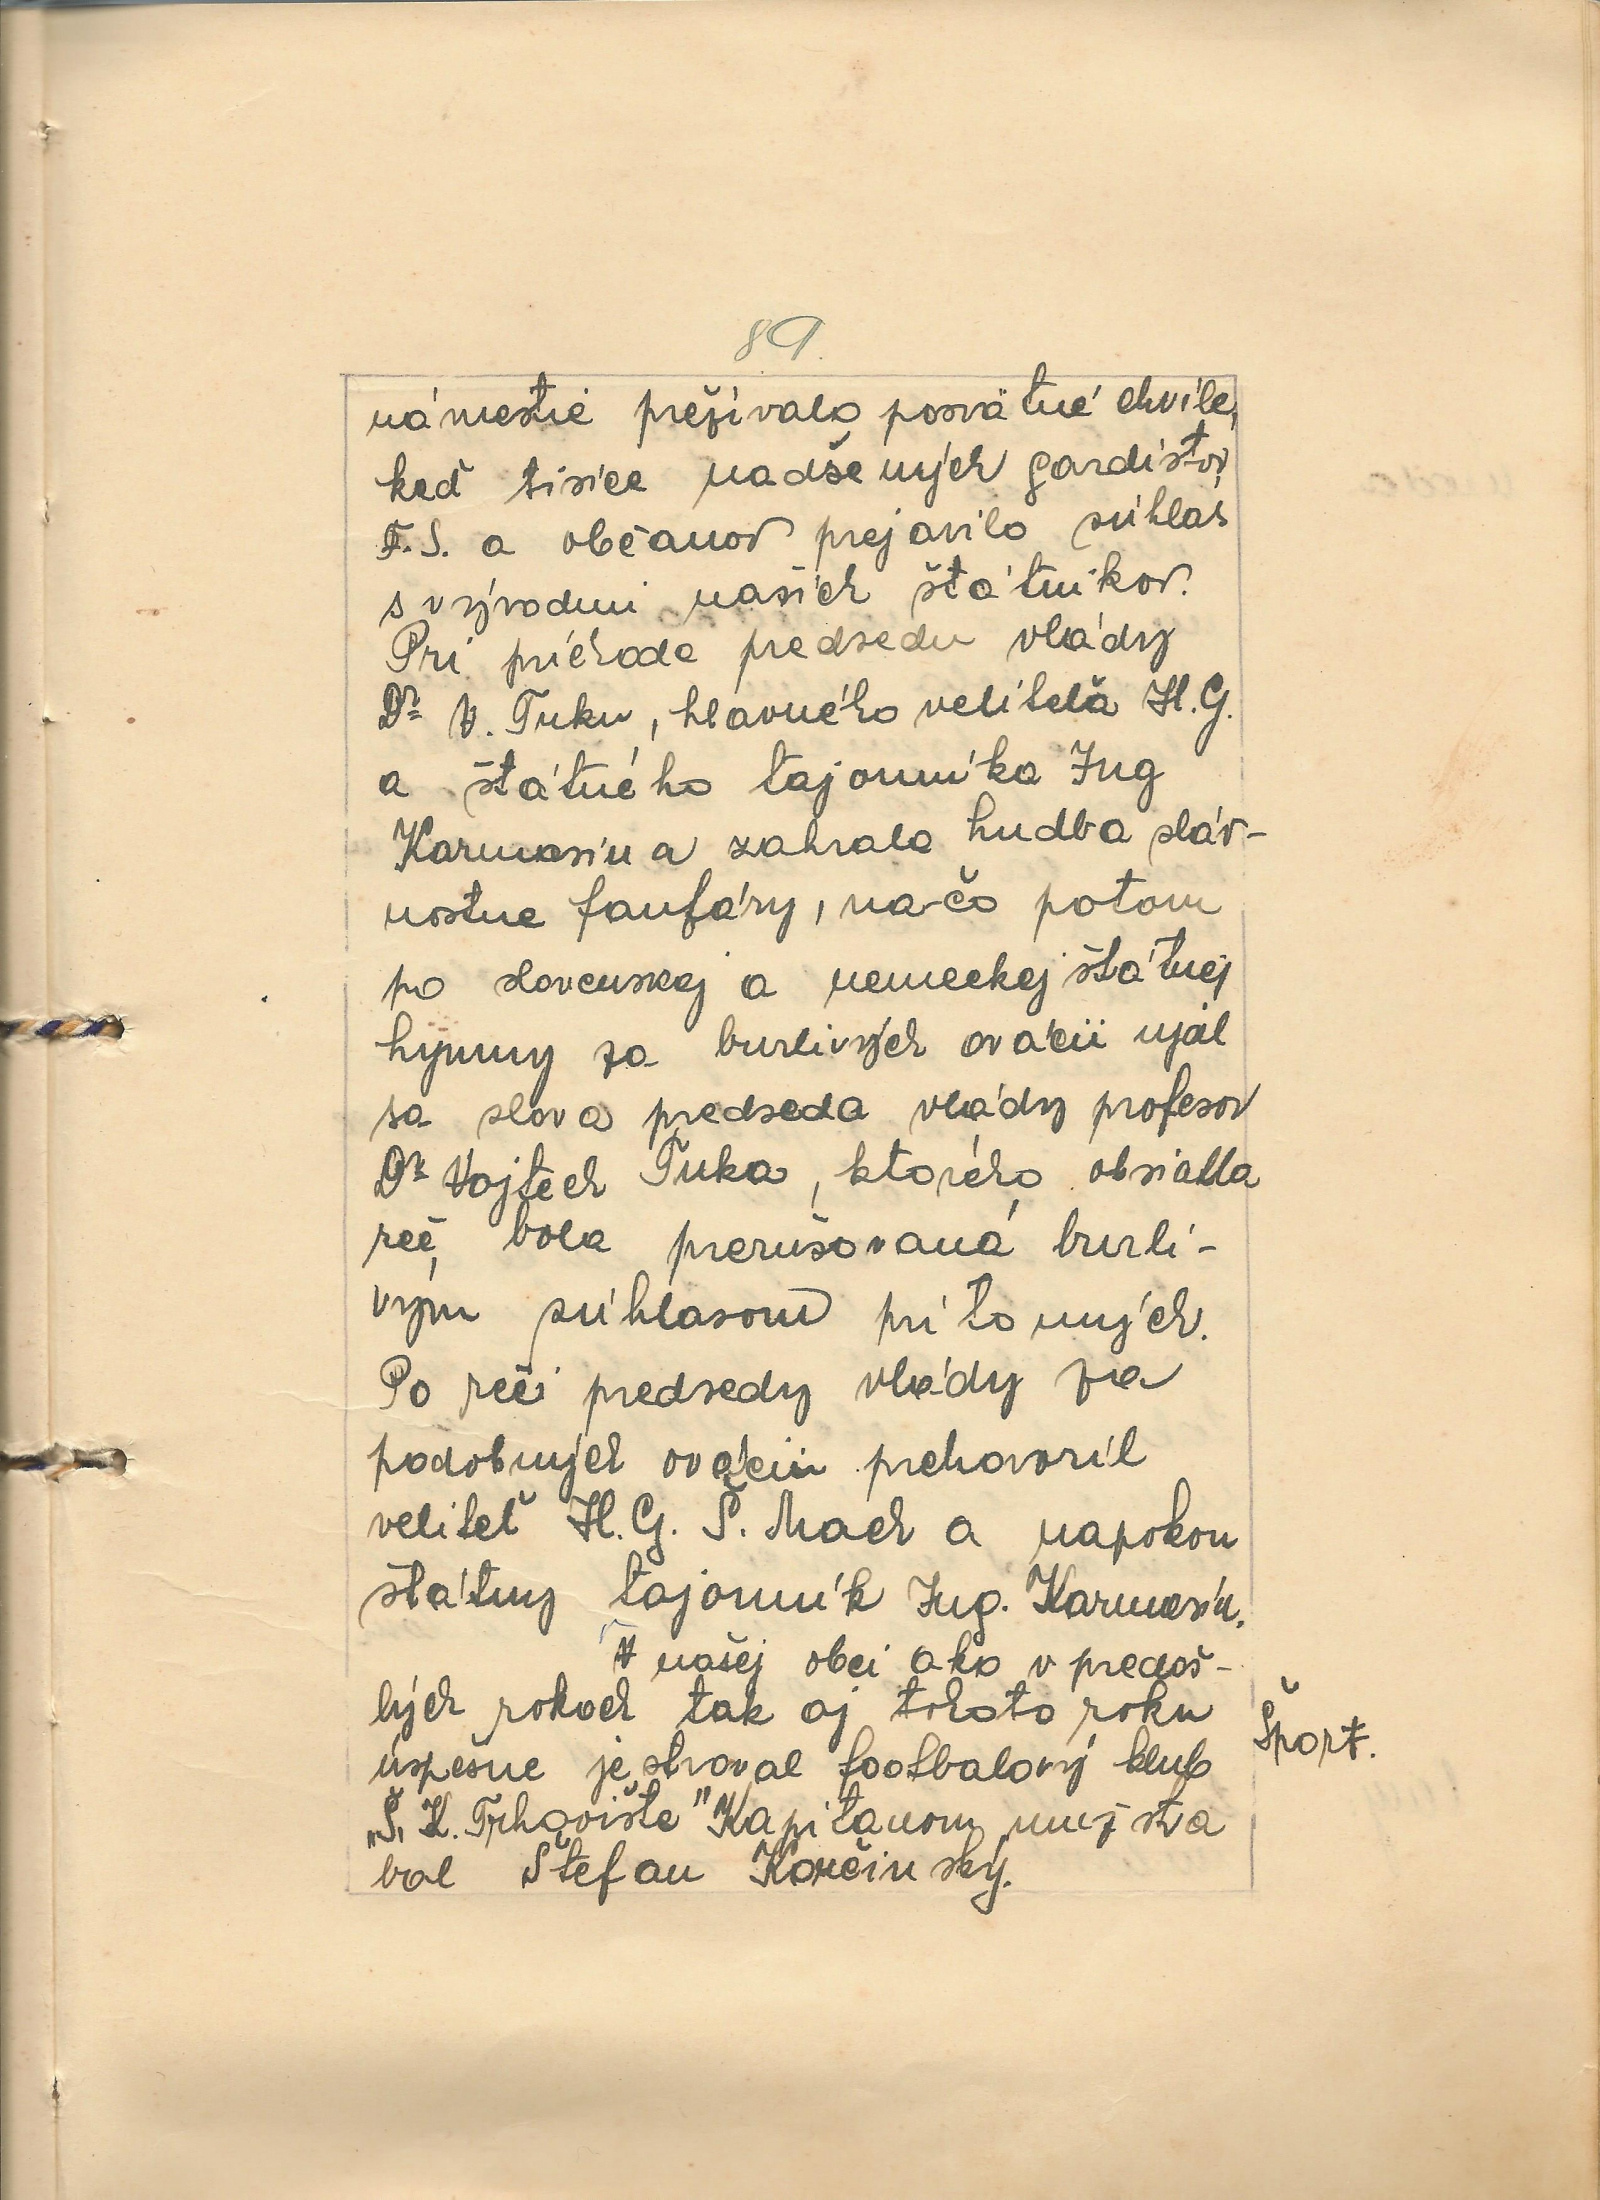 89.
námestie prežívalo posvätné chvíle,
keď tisíce nadšených gardistov,
F.S. a občanov prejavilo súhlas
s vývodmi našich štátnikov.
Pri príchode predsedu vlády
Dr V. Tuku, hlavného veliteľa H.G.
a štátného tajomníka Ing
Karmasina zahrala hudba sláv-
nostne fanfáry, na-čo potom
po slovenskej a nemeckej štátnej
hymny za burlivých ovácii ujal
sa slova predseda vlády profesor
Dr Vojtech Tuka, ktorého obsiahla
reč, bola prerušovaná burli-
vým súhlasom prítomných.
Po reči predsedy vlády za
podobných ovácii prehovoril
veliteľ H.G. Š. Mach a napokon
štátny tajomník Ing. Karmasin.
V našej obci ako v predoš-
lých rokoch tak aj tohoto roku
Šport.
úspešne jestvoval footbalový klub
„Š. K. Trhovište" Kapitanom mužstva
bol Štefan Korčinský.